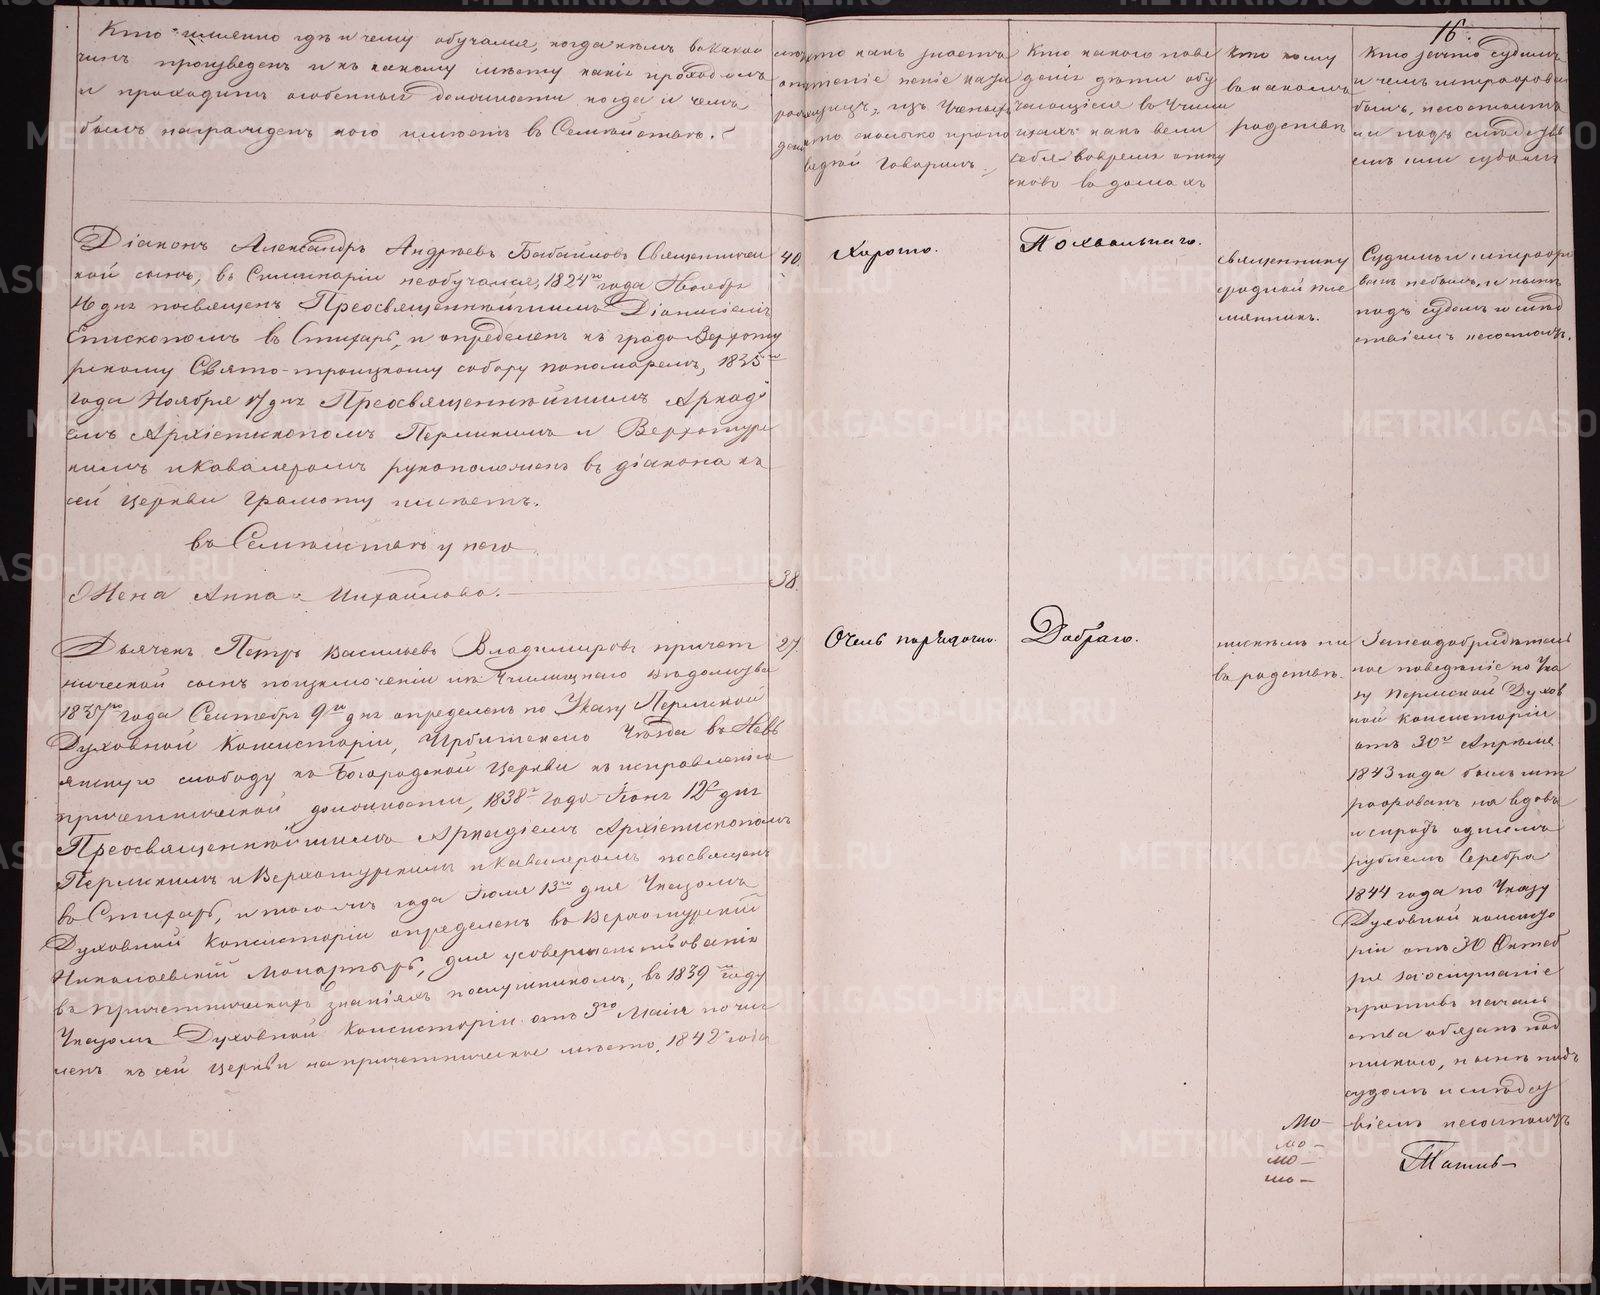 16.
Кто именно где и чему обучался, когда къмъ въ какой
чинъ произведенъ и къ какому мѣсту какіе проходилъ
и проходитъ особенныя должности когда и чемъ
былъ награжденъ кого имѣетъ въ Семѣйствѣ.
кто какъ знаетъ
чтеніе пеніе
изъ Ученыхъ
кто сколько пропо
ведей говорилъ.
Кто какого пове
денія дѣти обу
чающіеся въ Учили
щахъ какъ вели
себя вовремя отпу
сковъ въ домахъ
кто кому
въ какомъ
родствѣ
Кто за что судимъ
и чемъ штрафован
былъ, несостоитъ
ли подъ следств
емъ или судомъ
Діаконъ Александръ Андрѣевъ Бабайловъ Священничес
кой сынъ, въ Семинаріи необучался, 1824го года Ноября
16 дня посвященъ Преосвященнѣйшимъ Діонисіемъ
Епископомъ въ Стихарь, и определенъ къ градо Верхоту
рскому Свято-троицкому собору пономаремъ, 1835го
года Ноября 17 дня Преосвященнѣйшимъ Аркаді
емъ Архіепископомъ Пермскимъ и Верхотурс
кимъ и Кавалеромъ рукоположенъ въ діакона къ
сей церкви грамоту имѣетъ.
40
Хорошо.
Похвальнаго.
Священнику
родной пле
мянникъ.
Судимъ и штрафо
ванъ небылъ, и нынѣ
подъ судомъ и след
ствіемъ несостоитъ.
въ Семѣйствѣ у него
Жена Анна Михайлова.
38.
Дьячекъ Петръ Васильевъ Владимировъ причет
нической сынъ поизключеніи изъ Училищнаго вѣдомства
1837го года Сентября 9го дня определенъ по Указу Пермской
Духовной Консисторіи, Ирбитскаго Уѣзда въ Невь
янскую слободу къ Богородской Церкви къ исправленію
причетнической должности, 1838го года Іюня 12го дня
Преосвященнѣйшимъ Аркадіемъ Архіепископомъ
Пермскимъ и Верхотурскимъ и Кавалеромъ посвященъ
въ Стихарь, и того жъ года Іюля 13го дня Указомъ
Духовной Консисторіи определенъ въ Верхотурскій
Николаевскій монастырь, для усовершенствованія
въ причетническихъ знаніяхъ послушникомъ, въ 1839м году
Указомъ Духовной Консисторіи отъ 3го Маія
къ сей церкви на причетническое мѣсто. 1842го года
27
Очень порядочно.
Добраго.
никъмъ не
въ родствѣ.
поведѣніе по Ука
зу Пермской Духов
ной Консисторіи
отъ 30го Апреля
1843 года былъ шт
рафованъ на вдовъ
и сиротъ однимъ
рублемъ Серебра
1844 года по Указу
Духовной консисто
ріи отъ 30 Октяб
ря за ослушаніе
противъ началь
ства обязанъ под
пискою, нынѣ подъ
судомъ и следст
віемъ несостоитъ